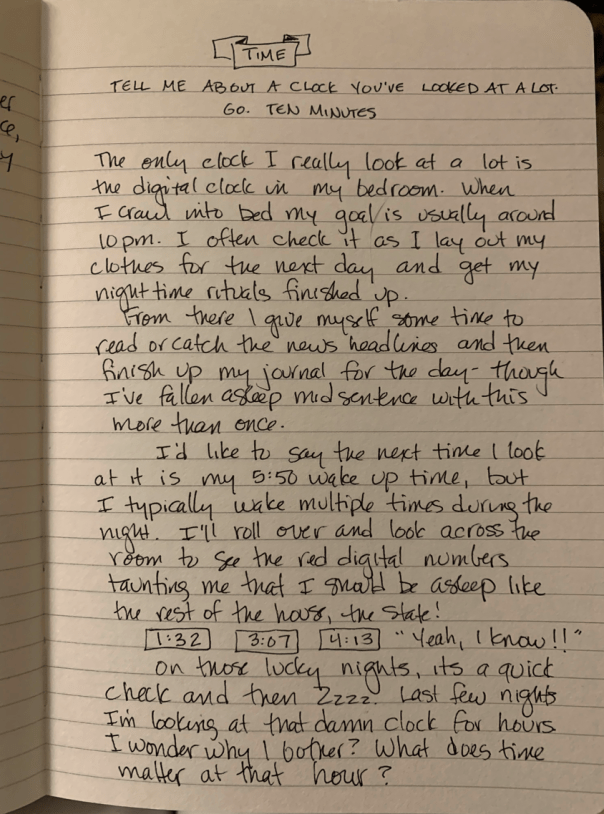 er
ce,
y
TIME
TELL ME ABOUT A CLOCK YOU'VE LOOKED AT A LOT.
GO. TEN MINUTES
The only clock I really look at a lot is
the digital clock in my bedroom. When
I crawl into bed my goal is usually around
10pm. I often check it as I lay out my
clothes for the next day and get my
night time rituals finished up.
From there I give myself some time to
read or catch the news headlines and then
finish up my journal for the day - though
I've fallen asleep mid sentence with this
more than once.
I'd like to say the next time I look
at it is my 5:50 wake up time, but
I typically wake multiple times during the
night. I'll roll over and look across the
room to see the red digital numbers
taunting me that I should be asleep like
the rest of the house, the state!
1:32 3:07 4:13 "Yeah, I know!!"
On those lucky nights, its a quick
check and then Zzzz. Last few nights
I'm looking at that damn clock for hours
I wonder why I bother? What does time
matter at that hour?